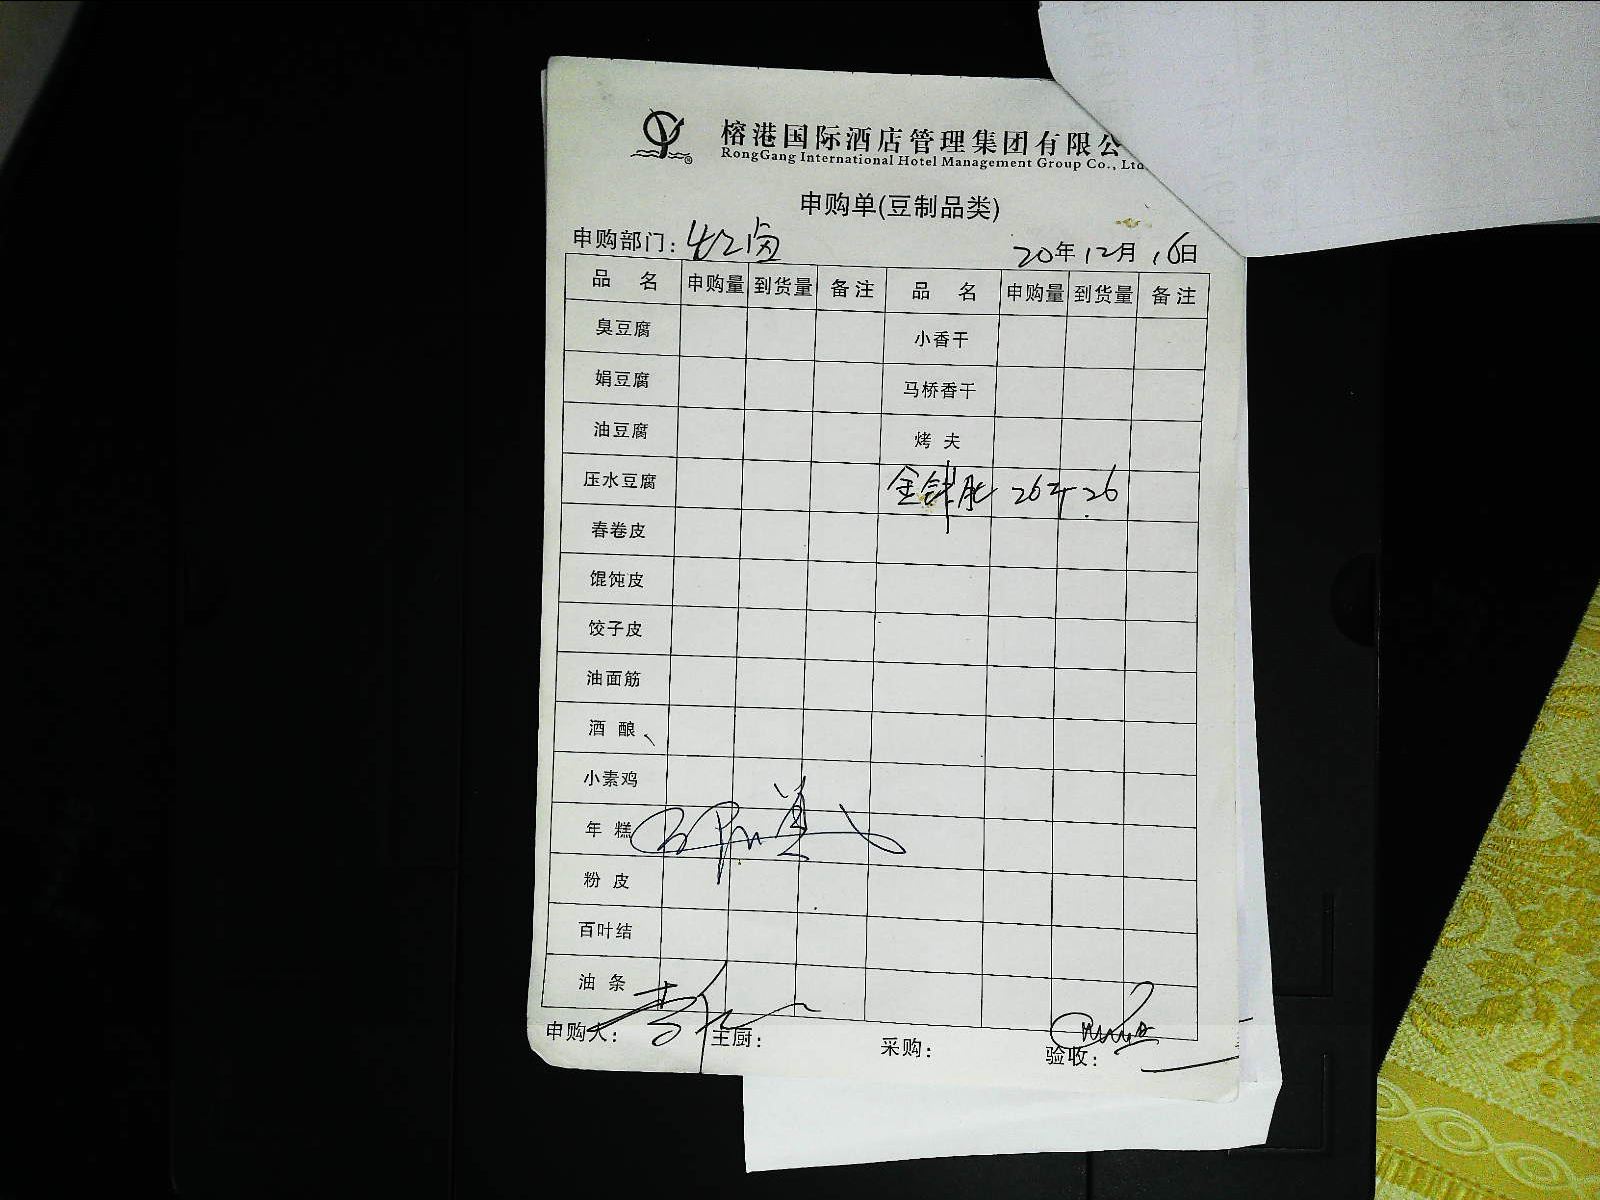 榕港国际酒店管理集团有限公
RongGang International Hotel Management Group Co., Ltd
申购单(豆制品类)
申购部门: 20年12月16日
品 名 申购量 到货量 备注 品 名 申购量 到货量 备注
臭豆腐 小香干
娟豆腐 马桥香干
油豆腐 烤 夫
压水豆腐 金钱肚 26斤 26
春卷皮
馄饨皮
饺子皮
油面筋
酒 酿
小素鸡
年 糕
粉 皮
百叶结
油 条
申购人: 主厨: 采购: 验收: